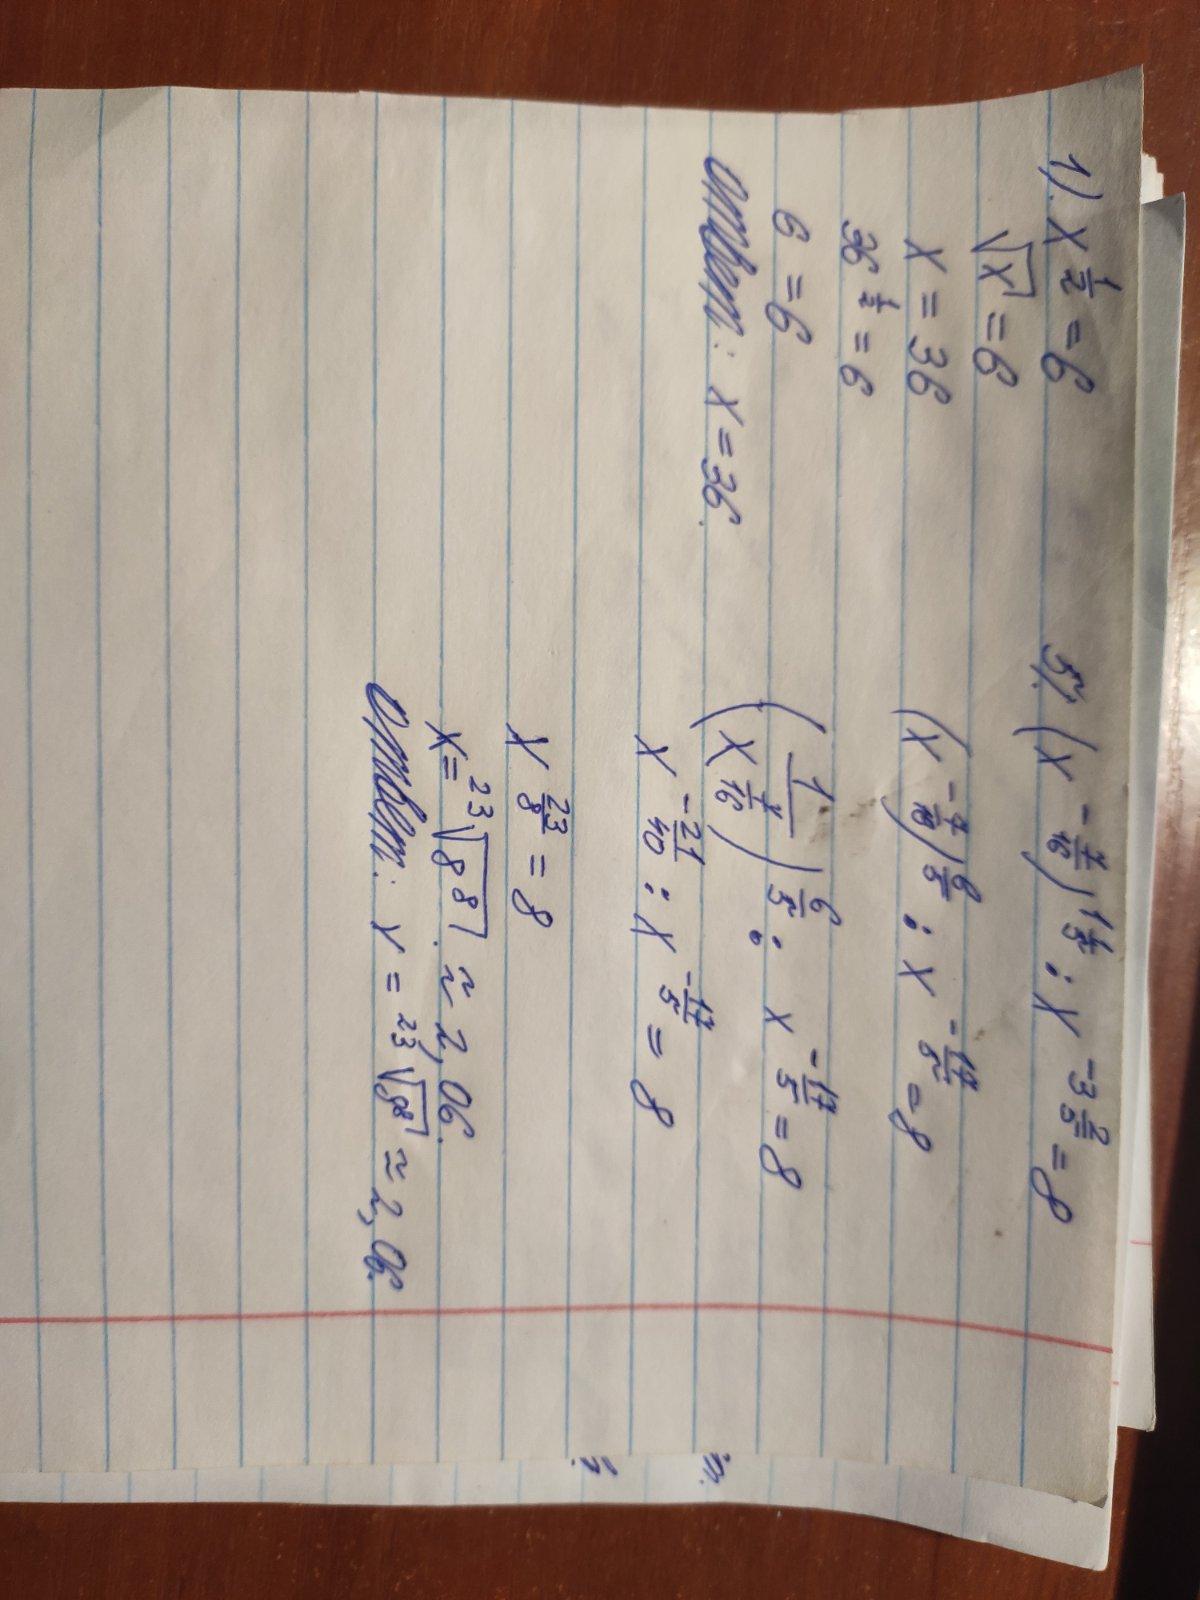 1). x^{\frac{1}{2}} = 6
\sqrt{x} = 6
x = 36
36^{\frac{1}{2}} = 6
6 = 6
Ответ: x = 36.
5). (x^{-\frac{7}{16}})^{1\frac{1}{5}} : x^{-3\frac{2}{5}} = 8
(x^{-\frac{7}{16}})^{\frac{6}{5}} : x^{-\frac{17}{5}} = 8
(\frac{1}{x^{\frac{7}{16}}})^{\frac{6}{5}} : x^{-\frac{17}{5}} = 8
x^{-\frac{21}{40}} : x^{-\frac{17}{5}} = 8
x^{\frac{23}{8}} = 8
x = \sqrt[23]{8^8} ≈ 2,06.
Ответ: x = \sqrt[23]{8^8} ≈ 2,06.